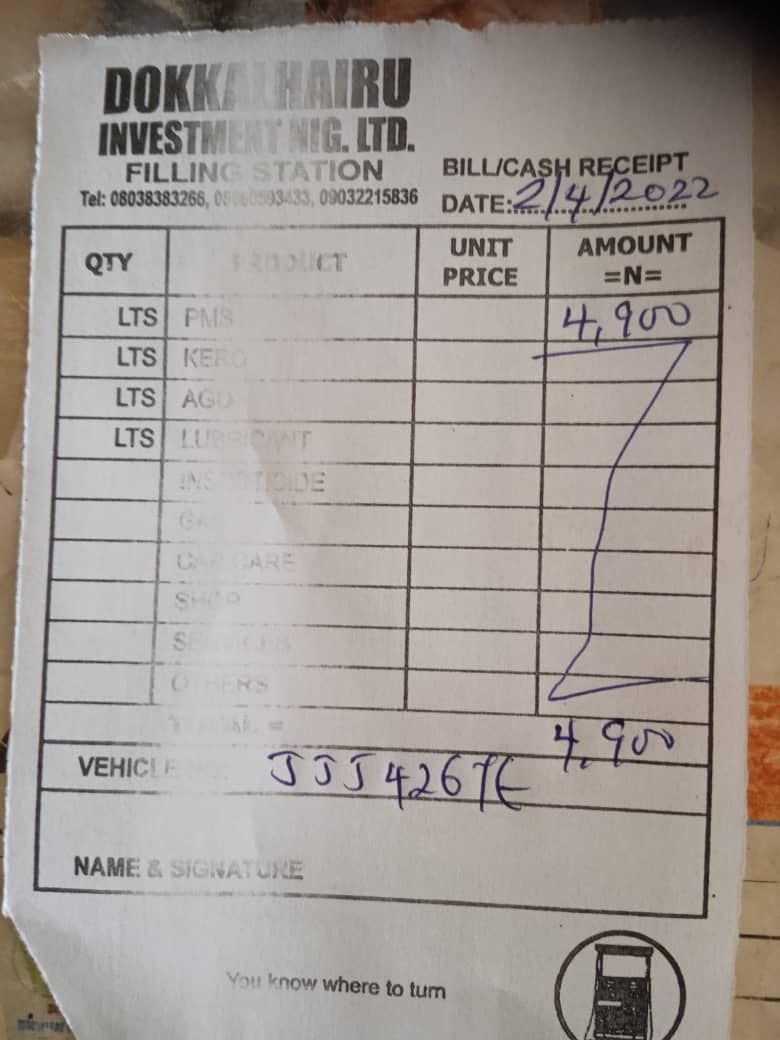 DOKKA HAIRU
INVESTMENT NIG. LTD.
FILLING STATION
Tel: 08038383266, 09032215836
BILL/CASH RECEIPT
DATE: 2/4/2022
QTY PRODUCT UNIT PRICE AMOUNT =N=
LTS PMS 4,900
LTS KERO
LTS AGO
LTS LUBRICANT
INSECTICIDE
CAR CARE
SHOP
SERVICES
OTHERS
TOTAL = 4,900
VEHICLE NO: JJJ426TE
NAME & SIGNATURE
You know where to turn